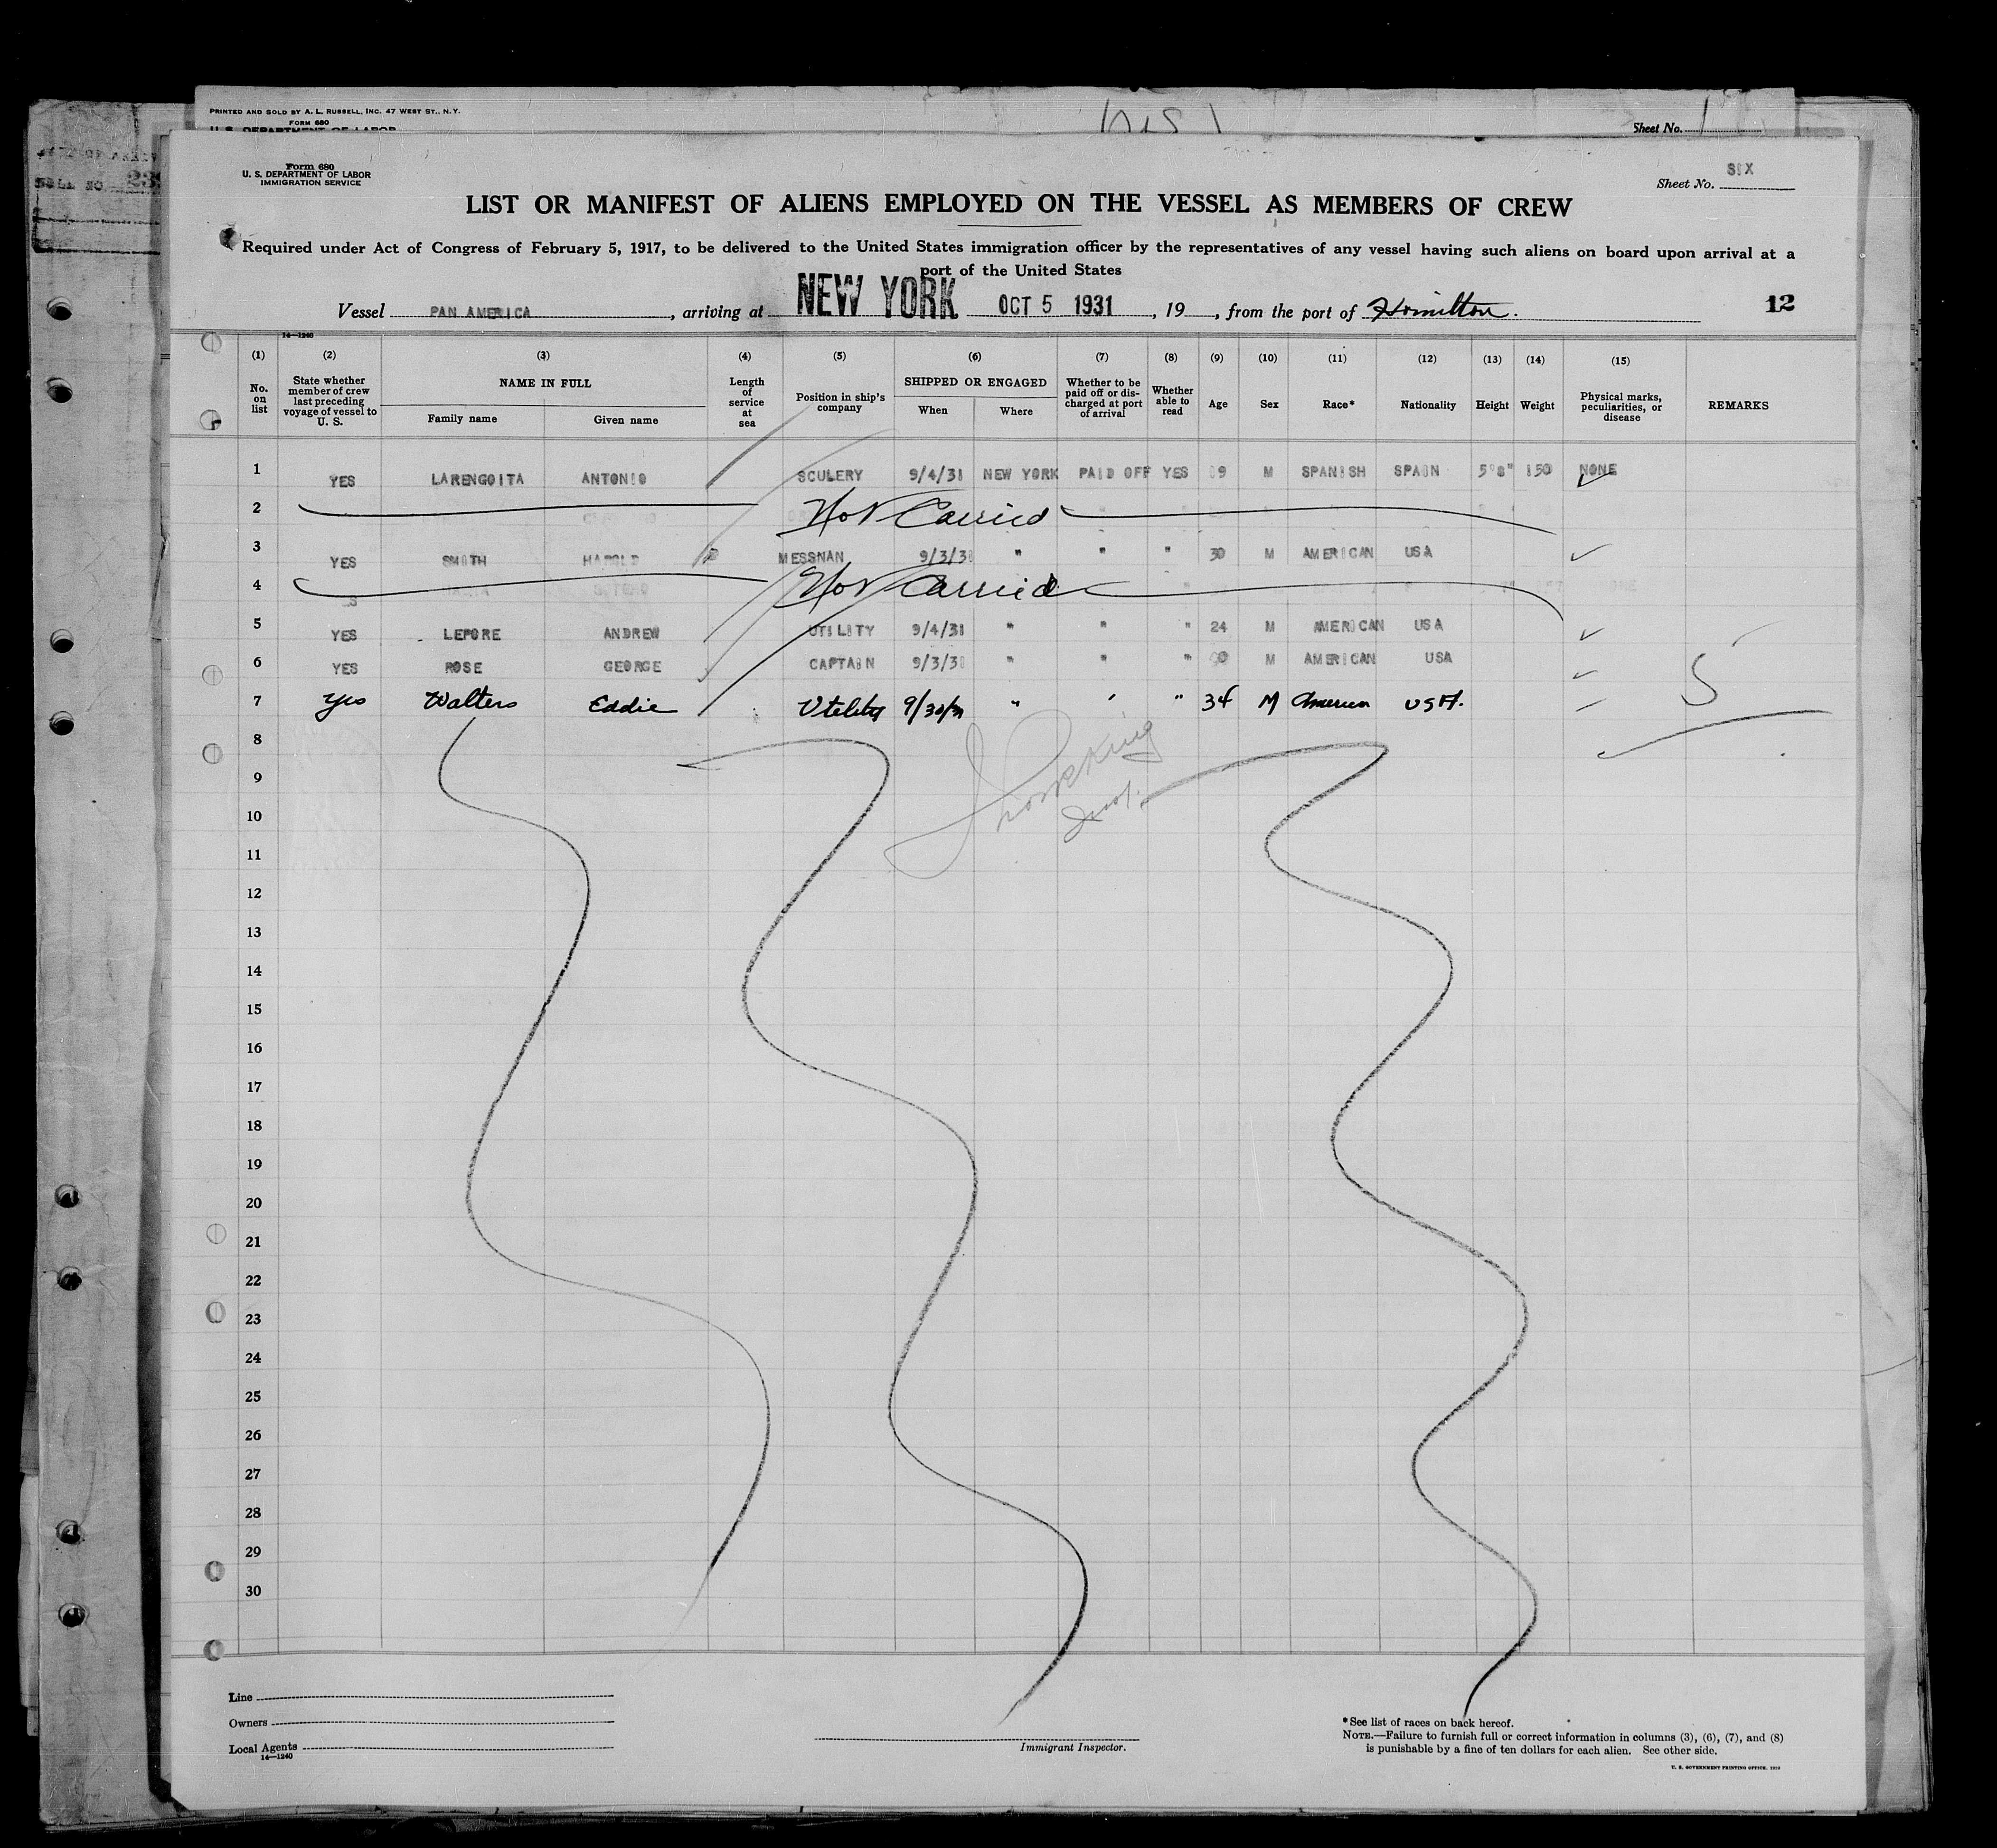 PRINTED AND SOLD BY A. L. RUSSELL, INC. 47 WEST ST., N. Y.
FORM 680
U. S. DEPARTMENT OF LABOR
Sheet No.
Form 680
U. S. DEPARTMENT OF LABOR
IMMIGRATION SERVICE
SIX
Sheet No.
LIST OR MANIFEST OF ALIENS EMPLOYED ON THE VESSEL AS MEMBERS OF CREW
Required under Act of Congress of February 5, 1917, to be delivered to the United States immigration officer by the representatives of any vessel having such aliens on board upon arrival at a
port of the United States
Vessel PAN AMERICA, arriving at NEW YORK OCT 5 1931, 19, from the port of Hamilton. 12
14—1240
(1) (2) (3) (4) (5) (6) (7) (8) (9) (10) (11) (12) (13) (14) (15)
No. on list
State whether member of crew last preceding voyage of vessel to U. S.
NAME IN FULL
Family name Given name
Length of service at sea
Position in ship's company
SHIPPED OR ENGAGED
When Where
Whether to be paid off or discharged at port of arrival
Whether able to read
Age Sex Race* Nationality Height Weight
Physical marks, peculiarities, or disease
REMARKS
1 YES LARENGOITA ANTONIO SCULERY 9/4/31 NEW YORK PAID OFF YES M SPANISH SPAIN 5'8" 150 NONE
2 Not Carried
3 YES SMITH HAROLD MESSNAN 9/3/31 " " " 30 M AMERICAN USA
4 Not Carried
5 YES LEPORE ANDREW UTILITY 9/4/31 " " " 24 M AMERICAN USA
6 YES ROSE GEORGE CAPTAIN 9/3/31 " " " M AMERICAN USA
7 Yes Walters Eddie Utility 9/30/31 " " " 34 M American USA.
5
8
9
10
11
12
13
14
15
16
17
18
19
20
21
22
23
24
25
26
27
28
29
30
Line
Owners
Local Agents
14—1240
Immigrant Inspector.
*See list of races on back hereof.
NOTE.—Failure to furnish full or correct information in columns (3), (6), (7), and (8)
is punishable by a fine of ten dollars for each alien. See other side.
U. S. GOVERNMENT PRINTING OFFICE. 1929